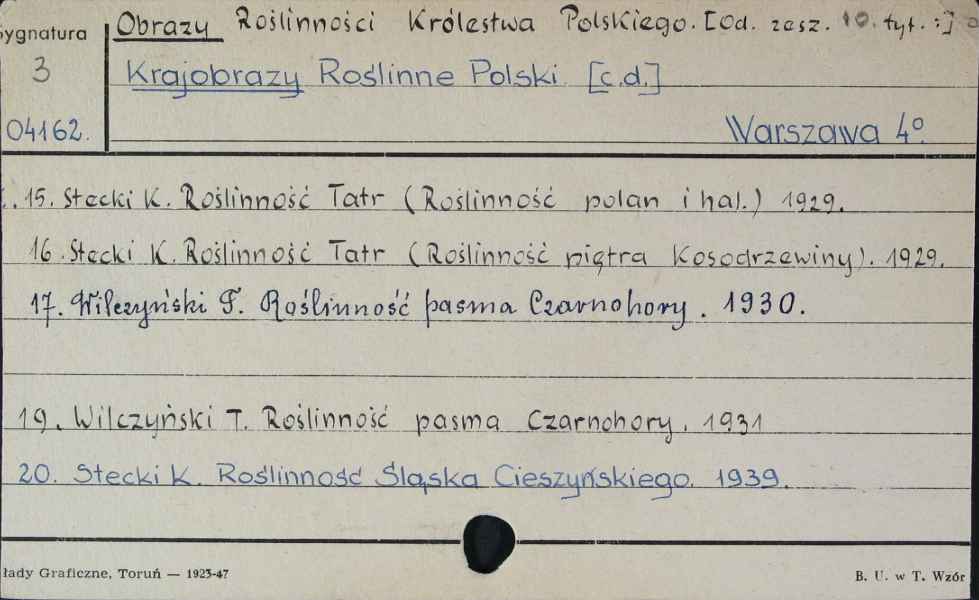 Obrazy Roślinności Królestwa Polskiego. [Od. zesz. 10. tyt. :]
ygnatura
3
Krajobrazy Roślinne Polski [c.d.]
04162.
Warszawa 4º.
15. Stecki K. Roślinność Tatr (Roślinność polan i hal.) 1929.
16. Stecki K. Roślinność Tatr (Roślinność piętra Kosodrzewiny). 1929.
17. Wilczyński T. Roślinność pasma Czarnohory. 1930.
19. Wilczyński T. Roślinność pasma Czarnohory. 1931
20. Stecki K. Roślinność Śląska Cieszyńskiego. 1939.
łady Graficzne, Toruń — 1923-47
B. U. w T. Wzór